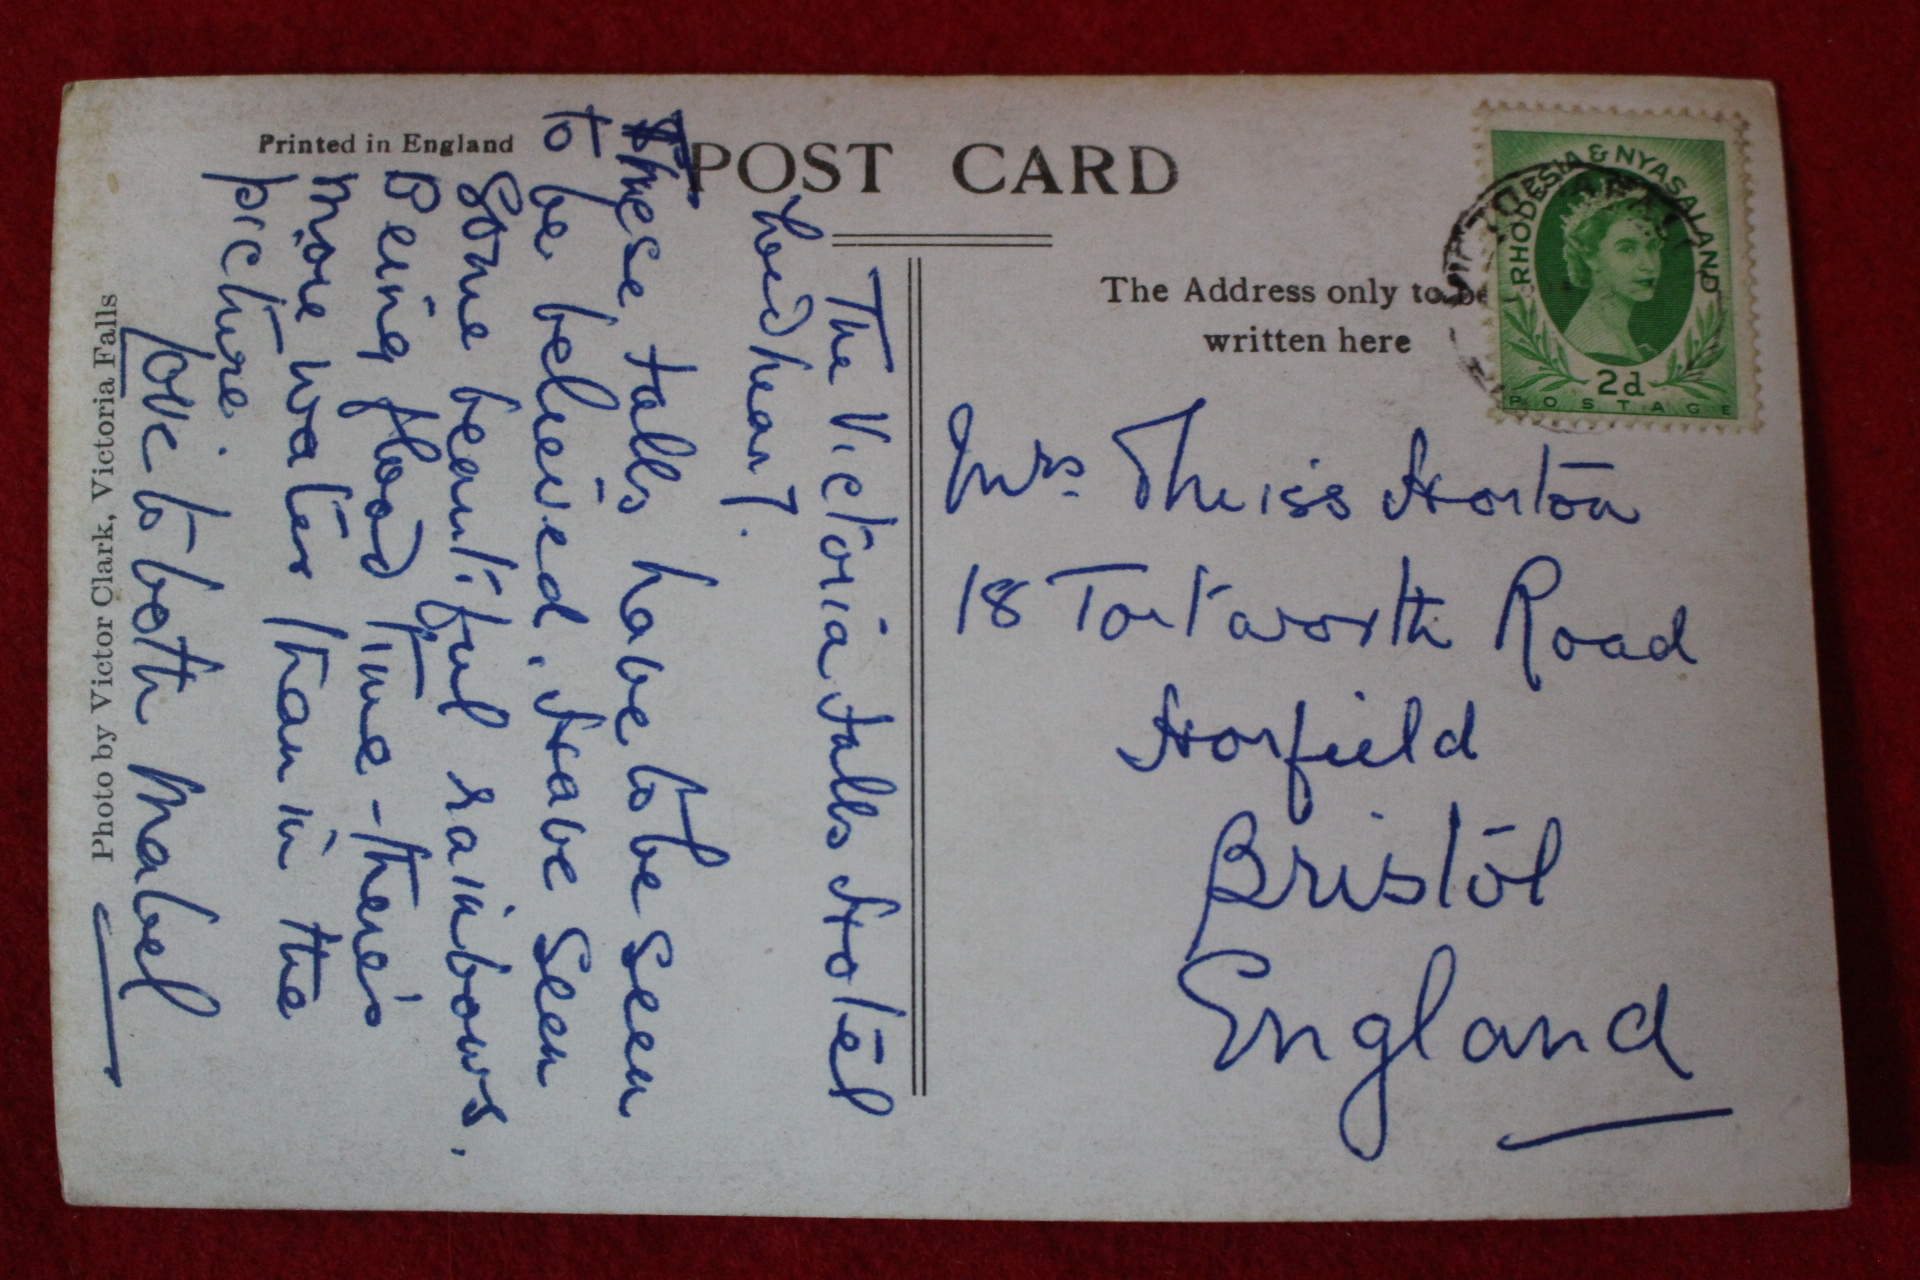 Printed in England
POST CARD
The Address only to be
written here
RHODESIA & NYASALAND
2d
POSTAGE
Photo by Victor Clark, Victoria Falls
The Victoria Falls Hotel
These falls have to be seen
to be believed. Have seen
some beautiful rainbows.
Being flood time - there's
more water than in the
picture.
Love to both Mabel
Mrs. Theiss Horton
18 Tortworth Road
Horfield
Bristol
England